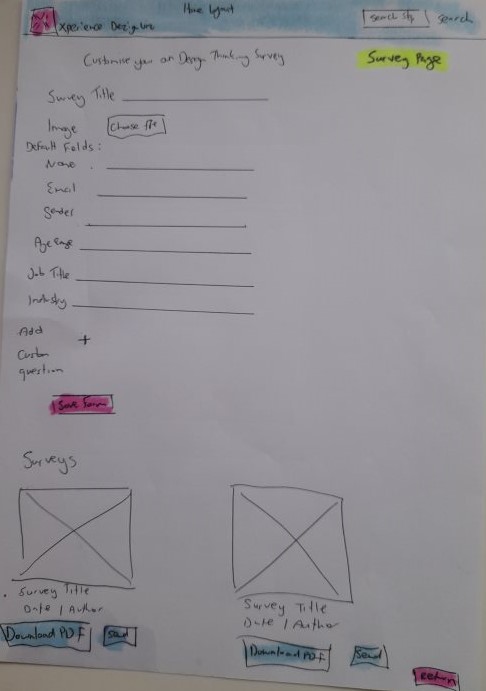 Home Logout
Search Stp search
Xperience Designture
Customise your own Design Thinking Survey
Survey Page
Survey Title
Image Choose file
Default Fields:
Name
Email
Gender
Age Range
Job Title
Industry
Add +
Custom
question
Save Form
Surveys
Survey Title
Date / Author
Download PDF Send
Survey Title
Date / Author
Download PDF Send
Return